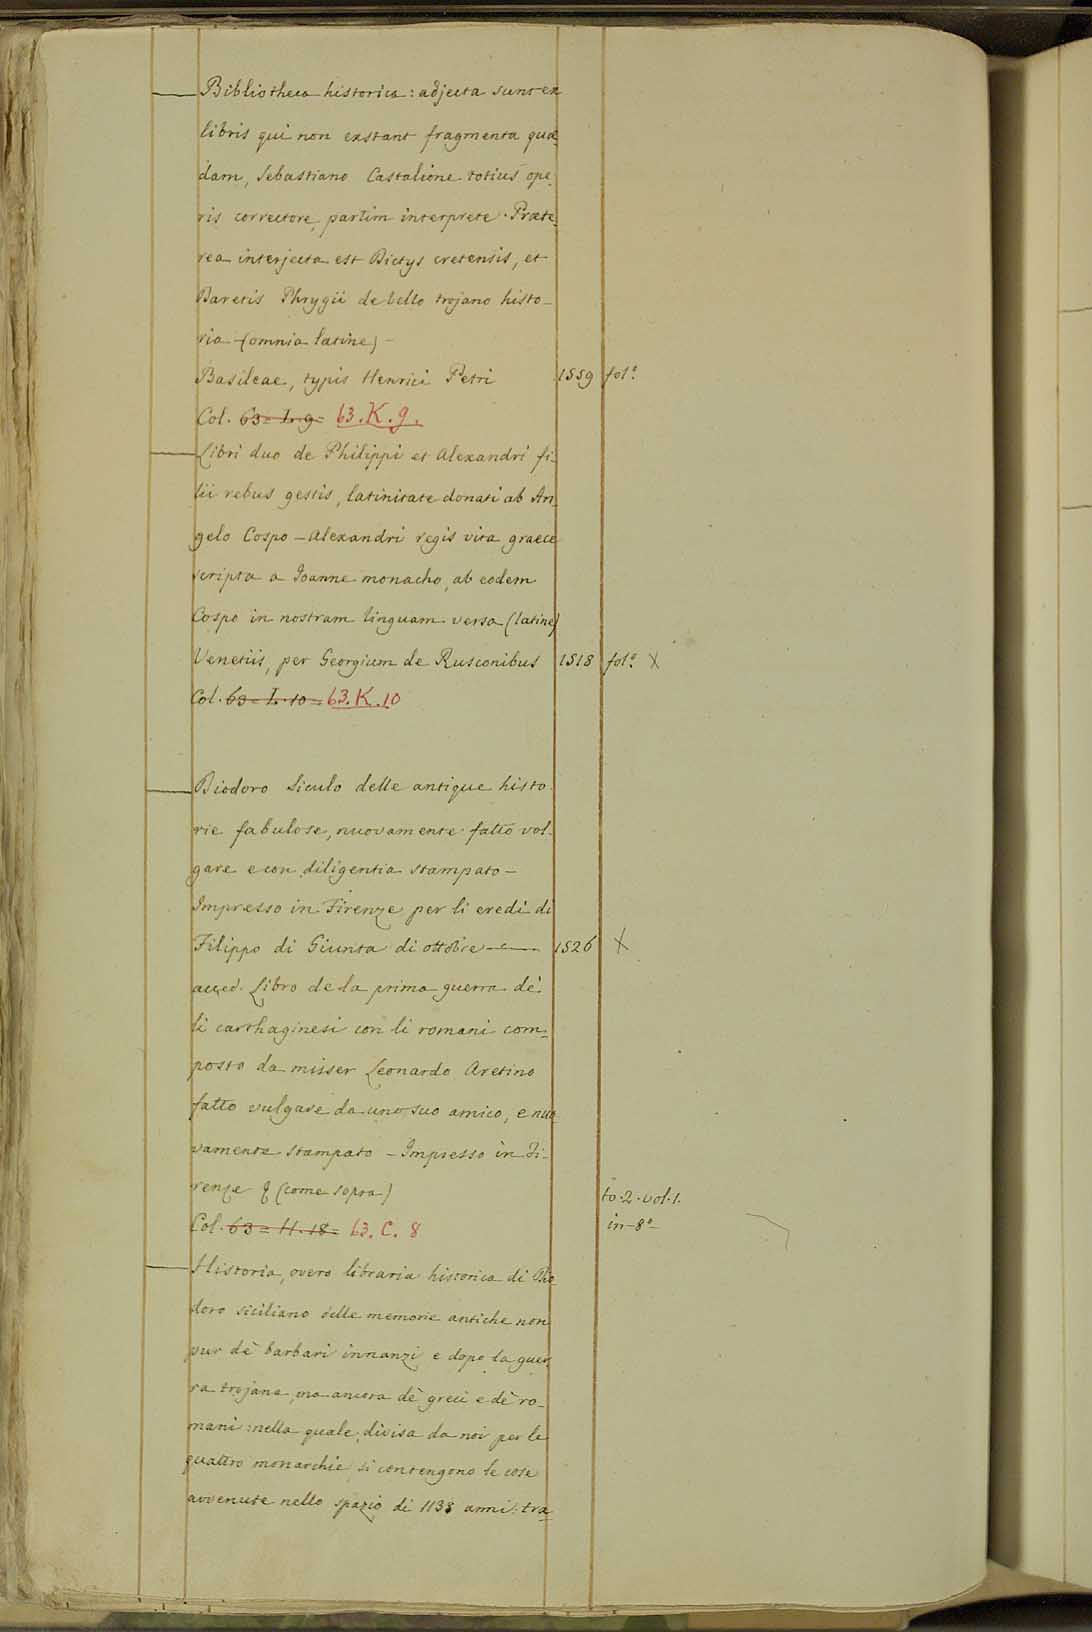 Bibliotheca historica: adjecta sunt ex
libris qui non exstant fragmenta quæ-
dam, Sebastiano Castalione totius ope-
ris correctore, partim interprete. Præte-
rea interjecta est Dictys cretensis, et
Daretis Phrygii de bello trojano histo-
ria - (omnia latine) -
Basileae, typis Henrici Petri 1559 fol.º
Col. 63 = I. 9 = 63.K.9.
Libri duo de Philippi et Alexandri fi-
lii rebus gestis, latinitate donati ab An-
gelo Cospo - Alexandri regis vita graece
scripta a Joanne monacho, ab eodem
Cospo in nostram linguam versa (latine)
Venetiis, per Georgium de Rusconibus 1518 fol.º X
Col. 63 = I. 10 = 63.K.10
Diodoro Siculo delle antique histo-
rie fabulose, nuovamente fatto vol-
gare e con diligentia stampato -
Impresso in Firenze per li eredi di
Filippo di Giunta di ottobre 1526 X
acced. Libro de la prima guerra de'
li carthaginesi con li romani com-
posto da misser Leonardo Aretino
fatto vulgare da uno suo amico, e nuo
vamente stampato - Impresso in Fi-
renze & (come sopra)
to. 2. vol. 1.
Col. 63 = H. 18 = 63. C. 8
in-8º
Historia, overo libraria historica di Dio
doro siciliano delle memorie antiche non
pur dè barbari innanzi e dopo la guer
ra trojana, ma ancora dè greci e dè ro-
mani: nella quale, divisa da noi per le
quattro monarchie si contengono le cose
avvenute nello spazio di 1138 anni: tra-